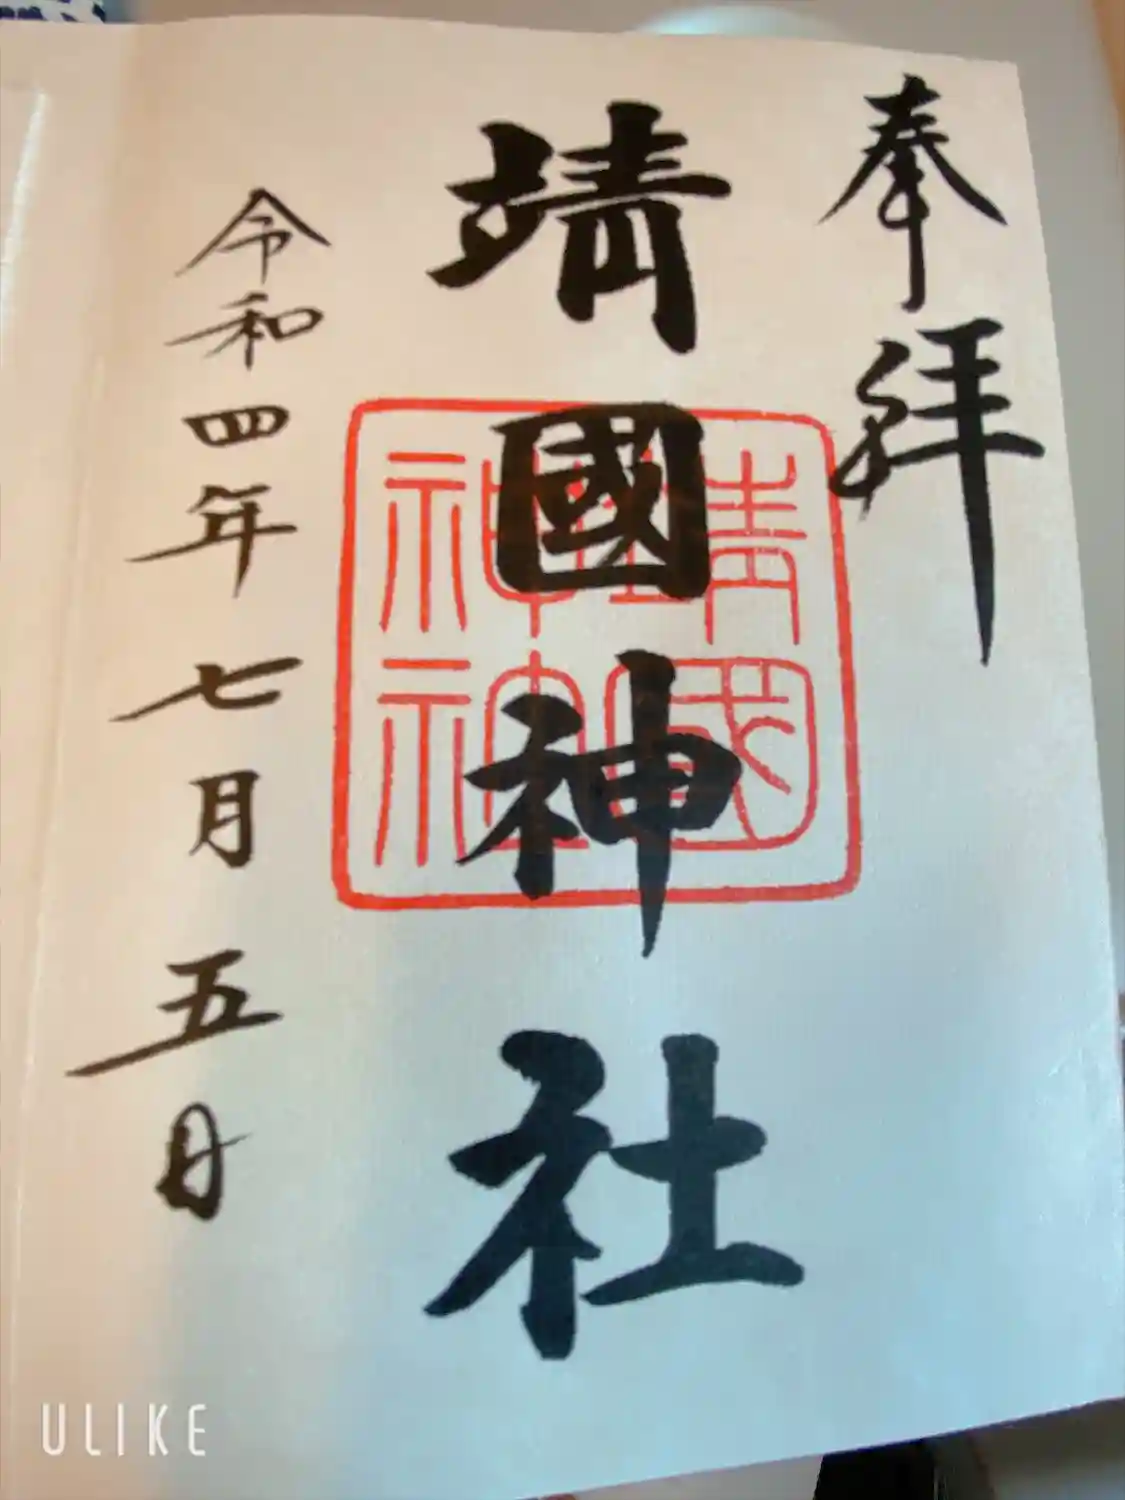 奉拜
靖國神社
靖國神社
令和四年七月五日
ULIKE